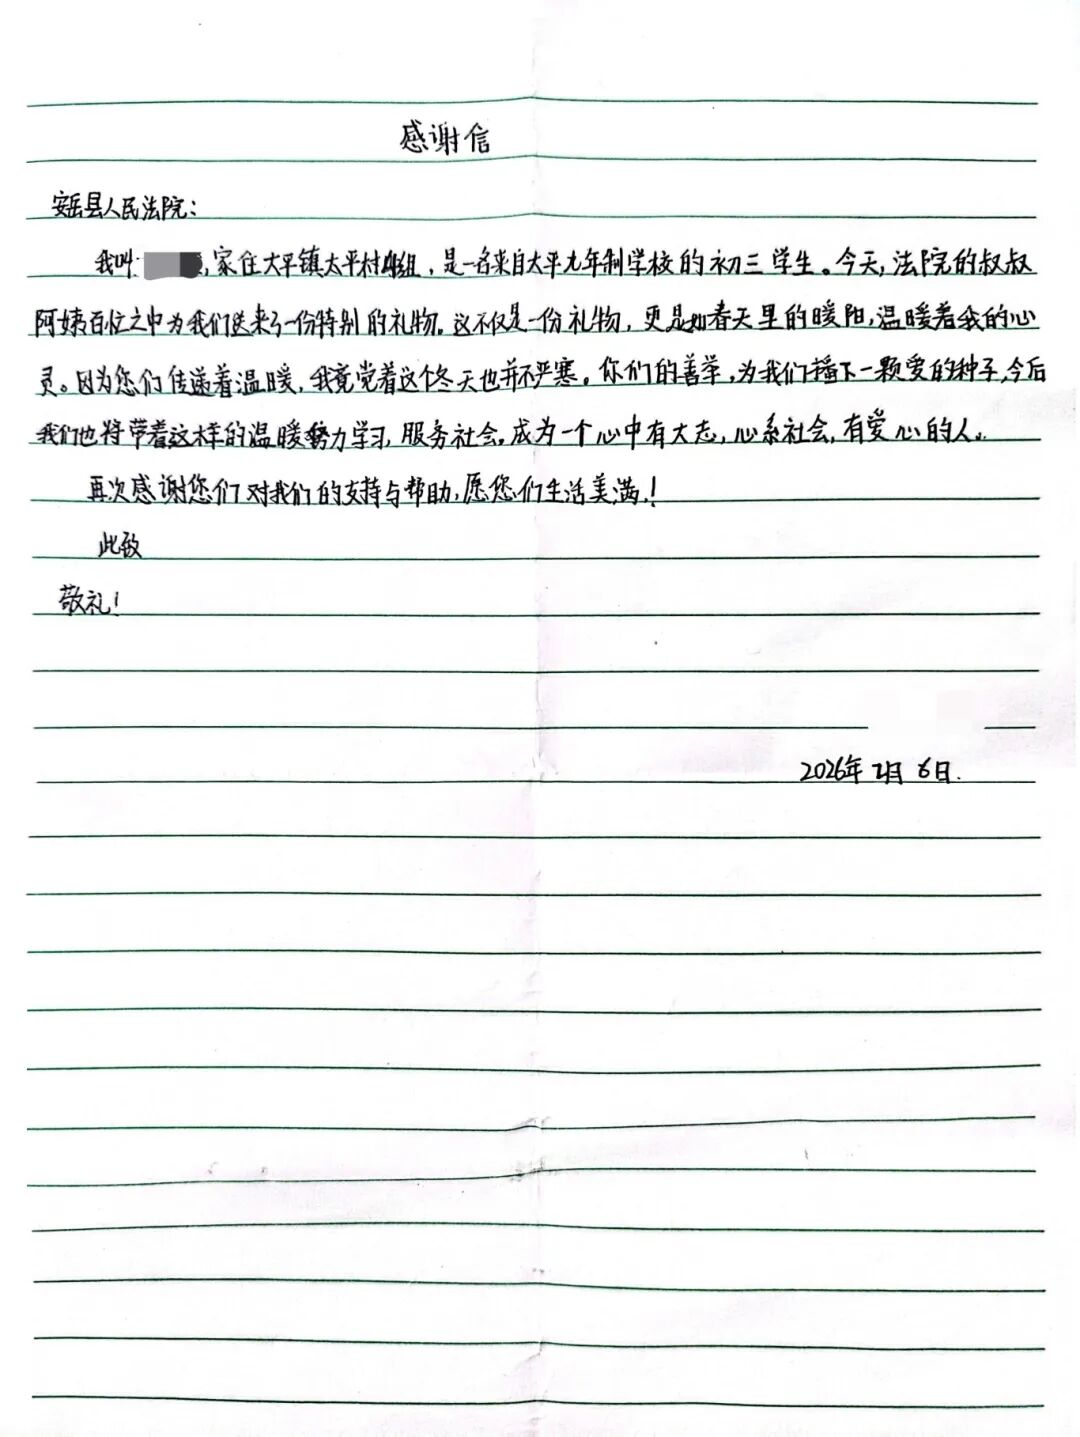 感谢信
安岳县人民法院：
我叫，家住太平镇太平村4组，是一名来自太平九年制学校的初三学生。今天，法院的叔叔
阿姨百忙之中为我们送来了一份特别的礼物。这不仅是一份礼物，更是如春天里的暖阳，温暖着我的心
灵。因为您们传递着温暖，我竟觉着这个冬天也并不严寒。你们的善举，为我们播下一颗爱的种子，今后
我们也将带着这样的温暖努力学习，服务社会，成为一个心中有大志，心系社会，有爱心的人。
再次感谢您们对我们的支持与帮助，愿您们生活美满！
此致
敬礼！
2026年2月6日.